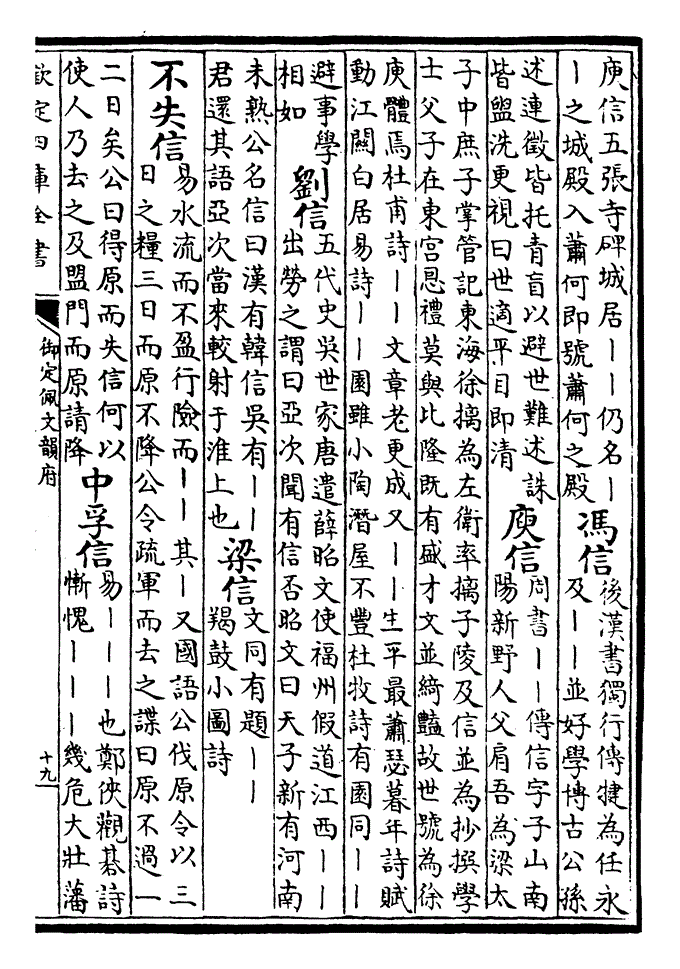 庾信五張寺碑城居丨丨仍名丨
丨之城殿入蕭何即號蕭何之殿
馮信
後漢書獨行傳犍為任永
及丨丨並好學博古公孫
述連徵皆托青盲以避世難述誅
皆盥洗更視曰世適平目即清
庾信
周書丨丨傳信字子山南
陽新野人父肩吾為梁太
子中庶子掌管記東海徐摛為左衛率摛子陵及信並為抄撰學
士父子在東宮恩禮莫與比隆既有盛才文並綺豔故世號為徐
庾體焉杜甫詩丨丨文章老更成又丨丨生平最蕭瑟暮年詩賦
動江關白居易詩丨丨園雖小陶潛屋不豐杜牧詩有園同丨丨
避事學
相如
劉信
五代史吳世家唐遣薛昭文使福州假道江西丨丨
出勞之謂曰亞次聞有信否昭文曰天子新有河南
未熟公名信曰漢有韓信吳有丨丨
君還其語亞次當來較射于淮上也
梁信
文同有題丨丨
羯鼓小圖詩
不失信
易水流而不盈行險而丨丨其丨又國語公伐原令以三
日之糧三日而原不降公令疏軍而去之諜曰原不過一
二日矣公曰得原而失信何以
使人乃去之及盟門而原請降
中孚信
易丨丨丨也鄭俠觀碁詩
慚愧丨丨丨幾危大壯藩
欽定四庫全書
御定佩文韻府
十九